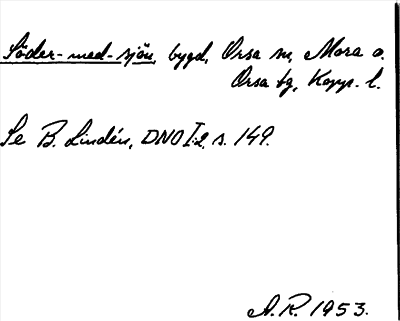 Söder-med-sjön, bygd, Orsa sn, Mora o.
Orsa tg, Kopp. l.
Se B. Lindén, DNO I:2, s. 149.
A.R. 1953.